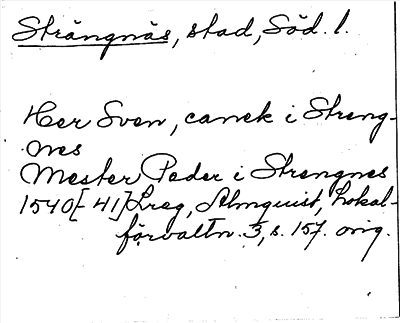 Strängnäs, stad, Söd. l.
Her Sven, canek i Streng-
nes
Mester Peder i Strengnes
1540[-41] Lreg, Almquist, Lokal-
förvaltn. 3, s. 157. orig.